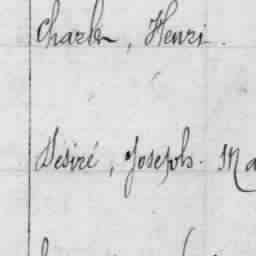 Charles, Henri.
Désiré, Joseph. Ma